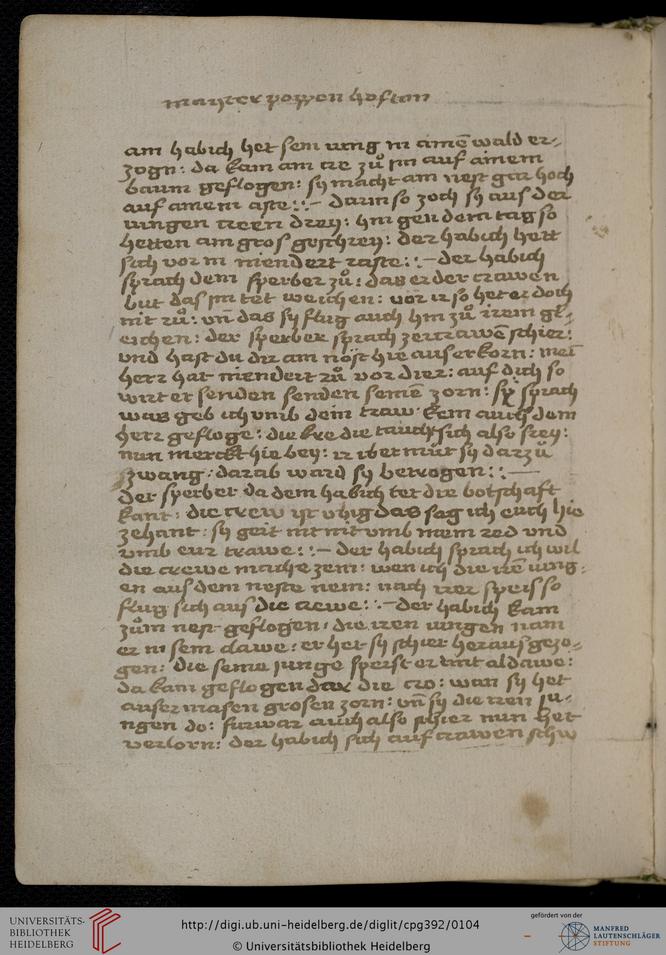 mayster poppen hofton
ain habich het sein iung in ainē wald er-
zogn : da kam ain cre zů im auf ainem
baum geflogen : sy macht ain nest gar hoch
auf ainem aste : :— darin so zoch sy aus der
iungen creen drey : hin gen dem tag so
hetten ain gros geschrey : der habich hett
sich vor in niendert raste : :— der habich
sprach dem sperber zů : das er der crawen
but das im tet weichen : vor ir so het er doch
nit rů : vn̄ das sy flug auch hin zů irem gl-
eichen : der sperber sprach zer crawē schier :
vnd hast du dir ain nöst hie auserkorn : mei
herz hat niendert rů vor dier : auf dich so
wirt er senden senden seinē zorn : sy sprach
was geb ich vmb dein traw kem auch dem
herz gefloge : die kre die taucht sich also frey :
nun merckt hie bey : ir ibermüt sy darzů
zwang : darab ward sy betrogen : :—
der sperber da dem habich tet die botschaft
kant : die crew ist vbig das sag ich euch hie
zehant : sy geit nit nit vmb mein red vnd
vmb eur trawe : :— der habich sprach ich wil
die crewe mache zem : wen ich die irē iung-
en aus dem neste nem : nach irer speis so
flug sich aus die crewe : :— der habich kam
zům nest geflogen : die iren iungen nam
er in sein clawe : er het sy schier heraus gezo-
gen : die seine junge speist er mit aldawe :
da kam geflogen dar die cro : wan sy het
auser masen grosen zorn : vn̄ sy die iren iu-
ngen do : furwar auch also schier nun het
verlorn : der habich sich auf crawen schw
UNIVERSITÄTS-
BIBLIOTHEK
HEIDELBERG
http://digi.ub.uni-heidelberg.de/diglit/cpg392/0104
© Universitätsbibliothek Heidelberg
gefördert von der
MANFRED
LAUTENSCHLÄGER
STIFTUNG